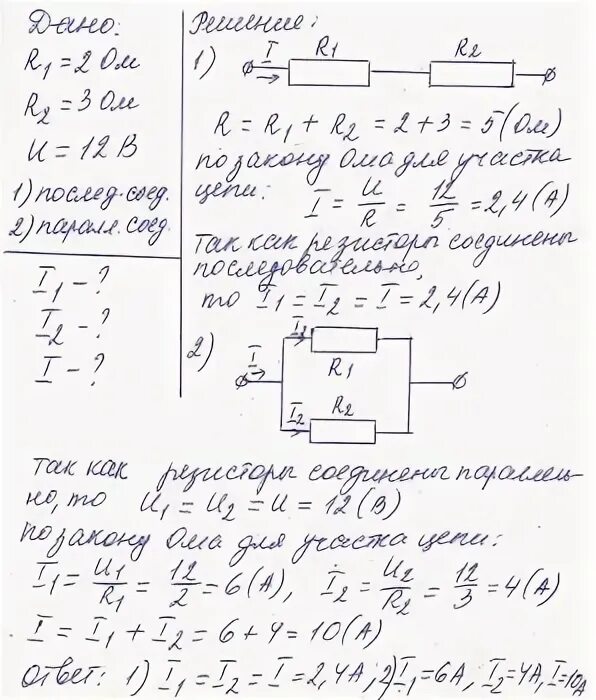 Дано:
R₁ = 2 Ом
R₂ = 3 Ом
U = 12 В
1) послед. соед.
2) паралл. соед.
I₁ - ?
I₂ - ?
I - ?
Решение:
1) I R₁ R₂
R = R₁ + R₂ = 2 + 3 = 5 (Ом)
по закону Ома для участка
цепи: I = U/R = 12/5 = 2,4 (А)
так как резисторы соединены
последовательно,
то I₁ = I₂ = I = 2,4 (А)
2) I I₁ R₁
I₂ R₂
так как резисторы соединены параллель-
но, то U₁ = U₂ = U = 12 (В)
по закону Ома для участка цепи:
I₁ = U₁/R₁ = 12/2 = 6 (А), I₂ = U₂/R₂ = 12/3 = 4 (А)
I = I₁ + I₂ = 6 + 4 = 10 (А)
ответ: 1) I₁ = I₂ = I = 2,4А; 2) I₁ = 6А, I₂ = 4А, I = 10А